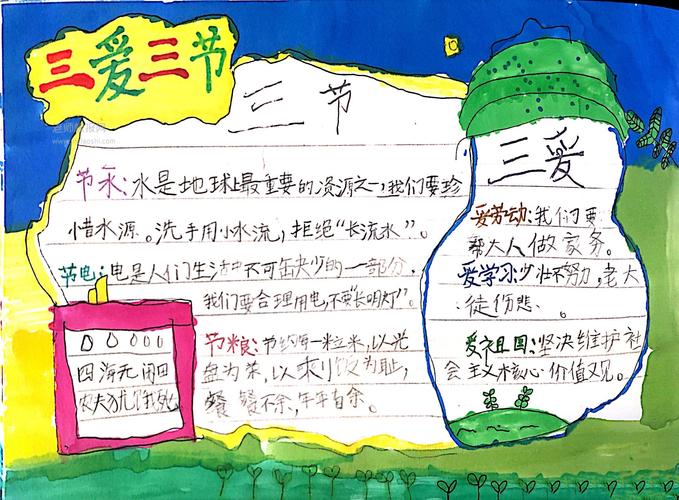 三爱三节
三节
节水:水是地球上最重要的资源之一,我们要珍
惜水源。洗手用小水流,拒绝“长流水”。
节电:电是人们生活中不可缺少的一部分,
我们要合理用电,不要“长明灯”。
节粮:节约每一粒米,以光
盘为荣,以剩饭为耻,
餐餐不余,年年有余。
四海无闲田
农夫犹饿死
三爱
爱劳动:我们要
帮大人做家务。
爱学习:少壮不努力,老大
徒伤悲。
爱祖国:坚决维护社
会主义核心价值观。